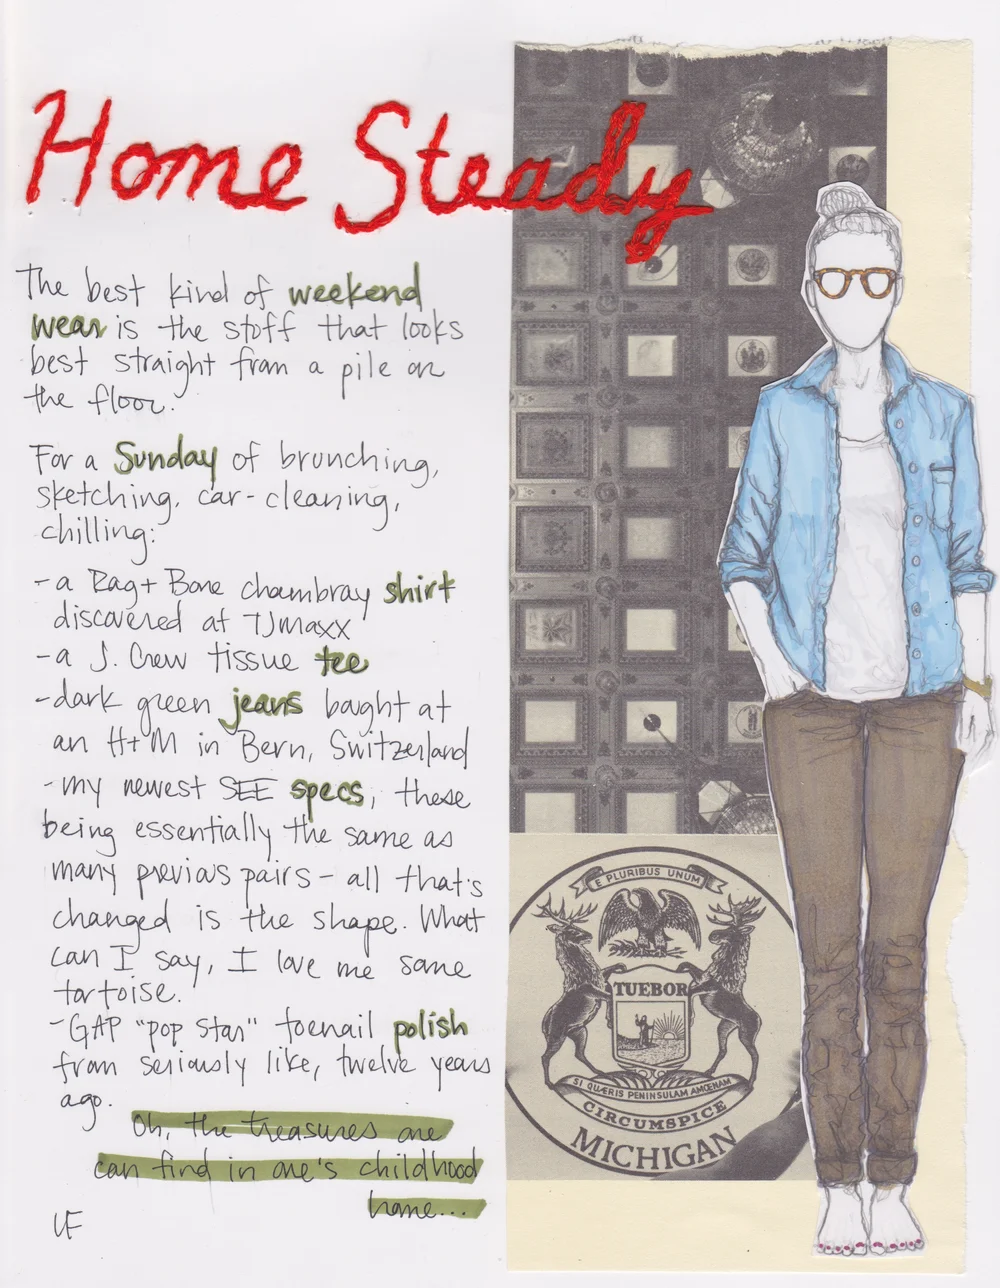 Home Steady
The best kind of weekend
wear is the stuff that looks
best straight from a pile on
the floor.
For a Sunday of brunching,
sketching, car-cleaning,
chilling:
- a Rag + Bone chambray shirt
discovered at TJmaxx
- a J. Crew tissue tee
- dark green jeans bought at
an H+M in Bern, Switzerland
- my newest SEE specs, these
being essentially the same as
many previous pairs - all that's
changed is the shape. What
can I say, I love me some
tortoise.
- GAP "pop star" toenail polish
from seriously like, twelve years
ago.
Oh, the treasures one
can find in one's childhood
home...
LF
E PLURIBUS UNUM
TUEBOR
SI QUÆRIS PENINSULAM AMŒNAM
CIRCUMSPICE
MICHIGAN